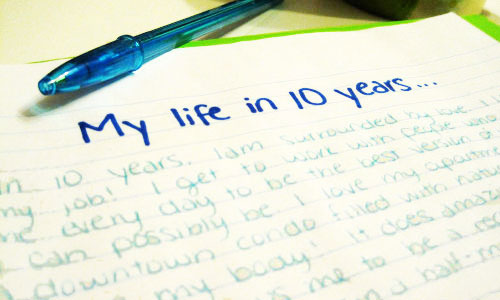 My life in 10 years...
In 10 years, I am surrounded by love. I
my job! I get to work with people who
me every day to be the best version of
can possibly be. I love my apartment
downtown condo filled with natu
my body! It does amaz
s me to be a re
n a half-m